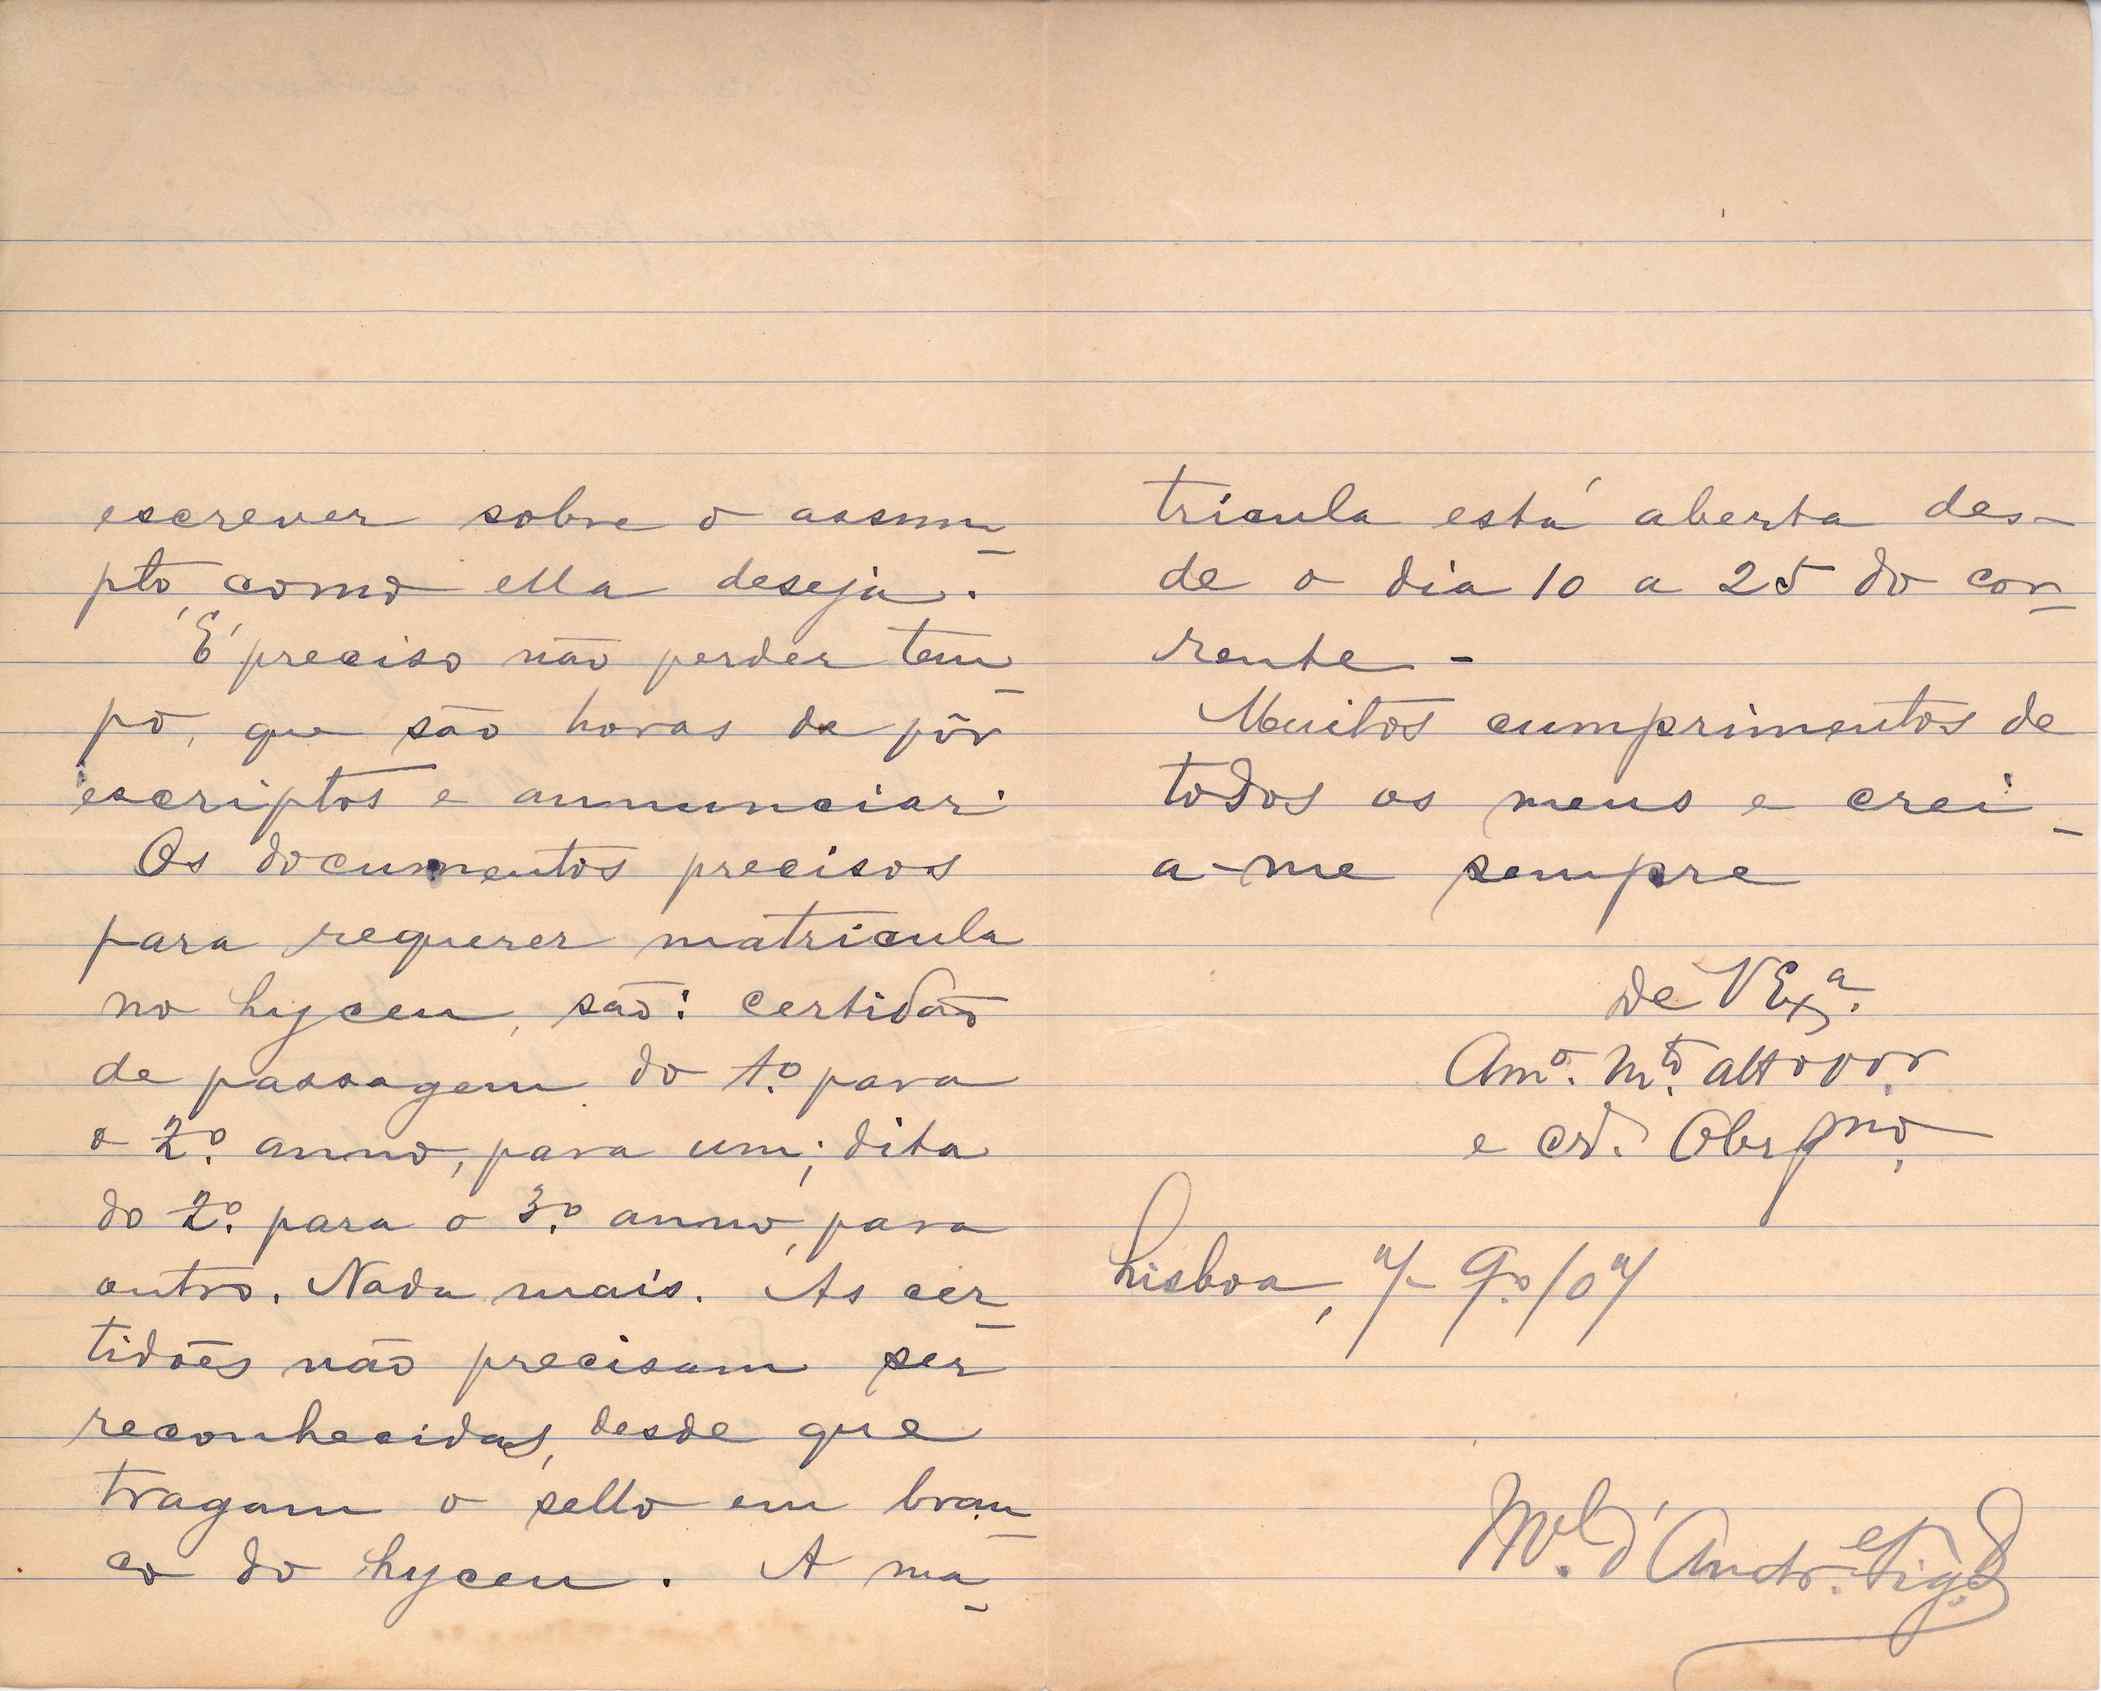 escrever sobre o assum-
pto, como ella deseja.
É preciso não perder tem-
po, que são horas de pôr
escriptos e annunciar.
Os documentos precisos
para requerer matricula
no Lyceu, são: certidão
de passagem do 1.º para
o 2.º anno, para um; dita
do 2.º para o 3.º anno, para
outro. Nada mais. As cer-
tidões não precisam ser
reconhecidas, desde que
tragam o sello em bran-
co do Lyceu. A ma-
tricula está aberta des-
de o dia 10 a 25 do cor-
rente -
Muitos cumprimentos de
todos os meus e crei-
a-me sempre
de V Ex.ª
Am.º M.to att
e cr.
Lisboa, 7/9.º/07
M.el d'Andr.e